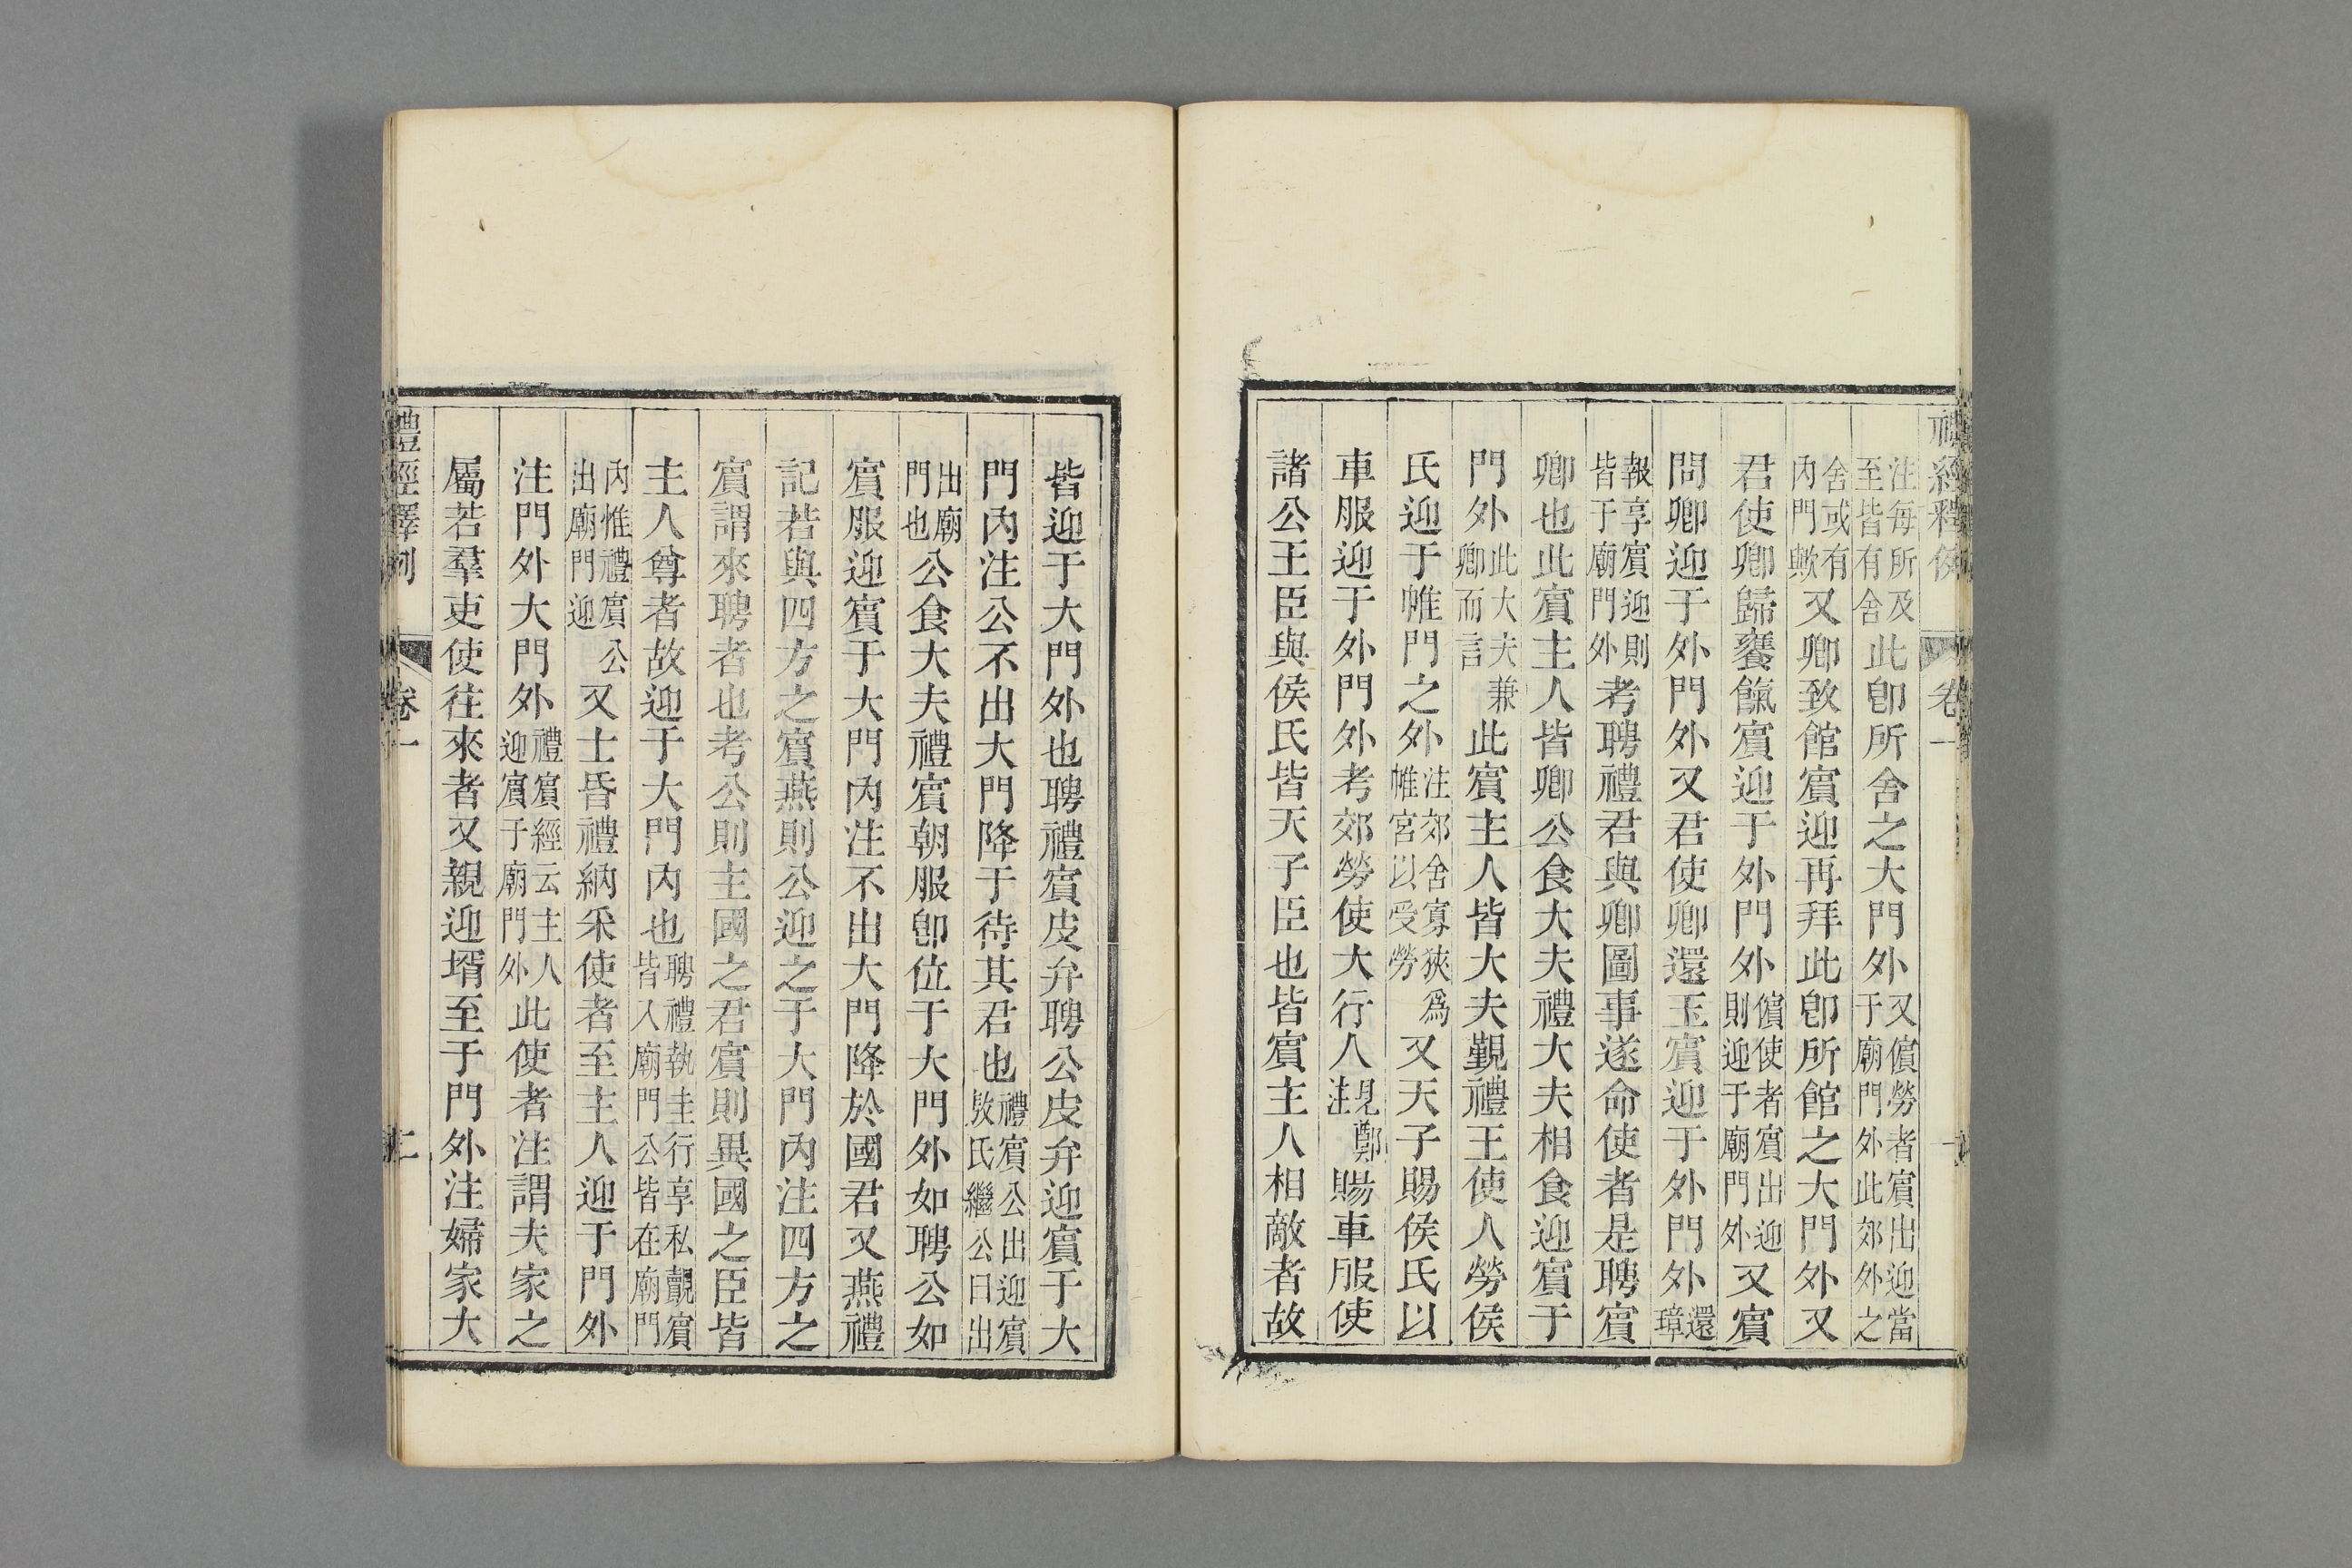 禮經釋例 卷一
注每所及
至皆有舍
此卽所舍之大門外
又儐勞者賓出迎當
于廟門外此郊外之
舍或有
內門歟
又卿致館賓迎再拜此卽所館之大門外又
君使卿歸饔餼賓迎于外門外
儐使者賓出迎
則迎于廟門外
又賓
問卿迎于外門外又君使卿還玉賓迎于外門外
還
璋
報享賓迎則
皆于廟門外
考聘禮君與卿圖事遂命使者是聘賓
卿也此賓主人皆卿公食大夫禮大夫相食迎賓于
門外
此大夫兼
卿而言
此賓主人皆大夫覲禮王使人勞侯
氏迎于帷門之外
注郊舍寡狹爲
帷宮以受勞
又天子賜侯氏以
車服迎于外門外考郊勞使大行人
見鄭
注
賜車服使
諸公王臣與侯氏皆天子臣也皆賓主人相敵者故
皆迎于大門外也聘禮賓皮弁聘公皮弁迎賓于大
門內注公不出大門降于待其君也
禮賓公出迎賓
敖氏繼公曰出
出廟
門也
公食大夫禮賓朝服卽位于大門外如聘公如
賓服迎賓于大門內注不出大門降於國君又燕禮
記若與四方之賓燕則公迎之于大門內注四方之
賓謂來聘者也考公則主國之君賓則異國之臣皆
主人尊者故迎于大門內也
聘禮執圭行享私覿賓
皆入廟門公皆在廟門
內惟禮賓公
出廟門迎
又士昏禮納采使者至主人迎于門外
注門外大門外
禮賓經云主人
迎賓于廟門外
此使者注謂夫家之
屬若羣吏使往來者又親迎壻至于門外注婦家大
禮經釋例 卷一 二